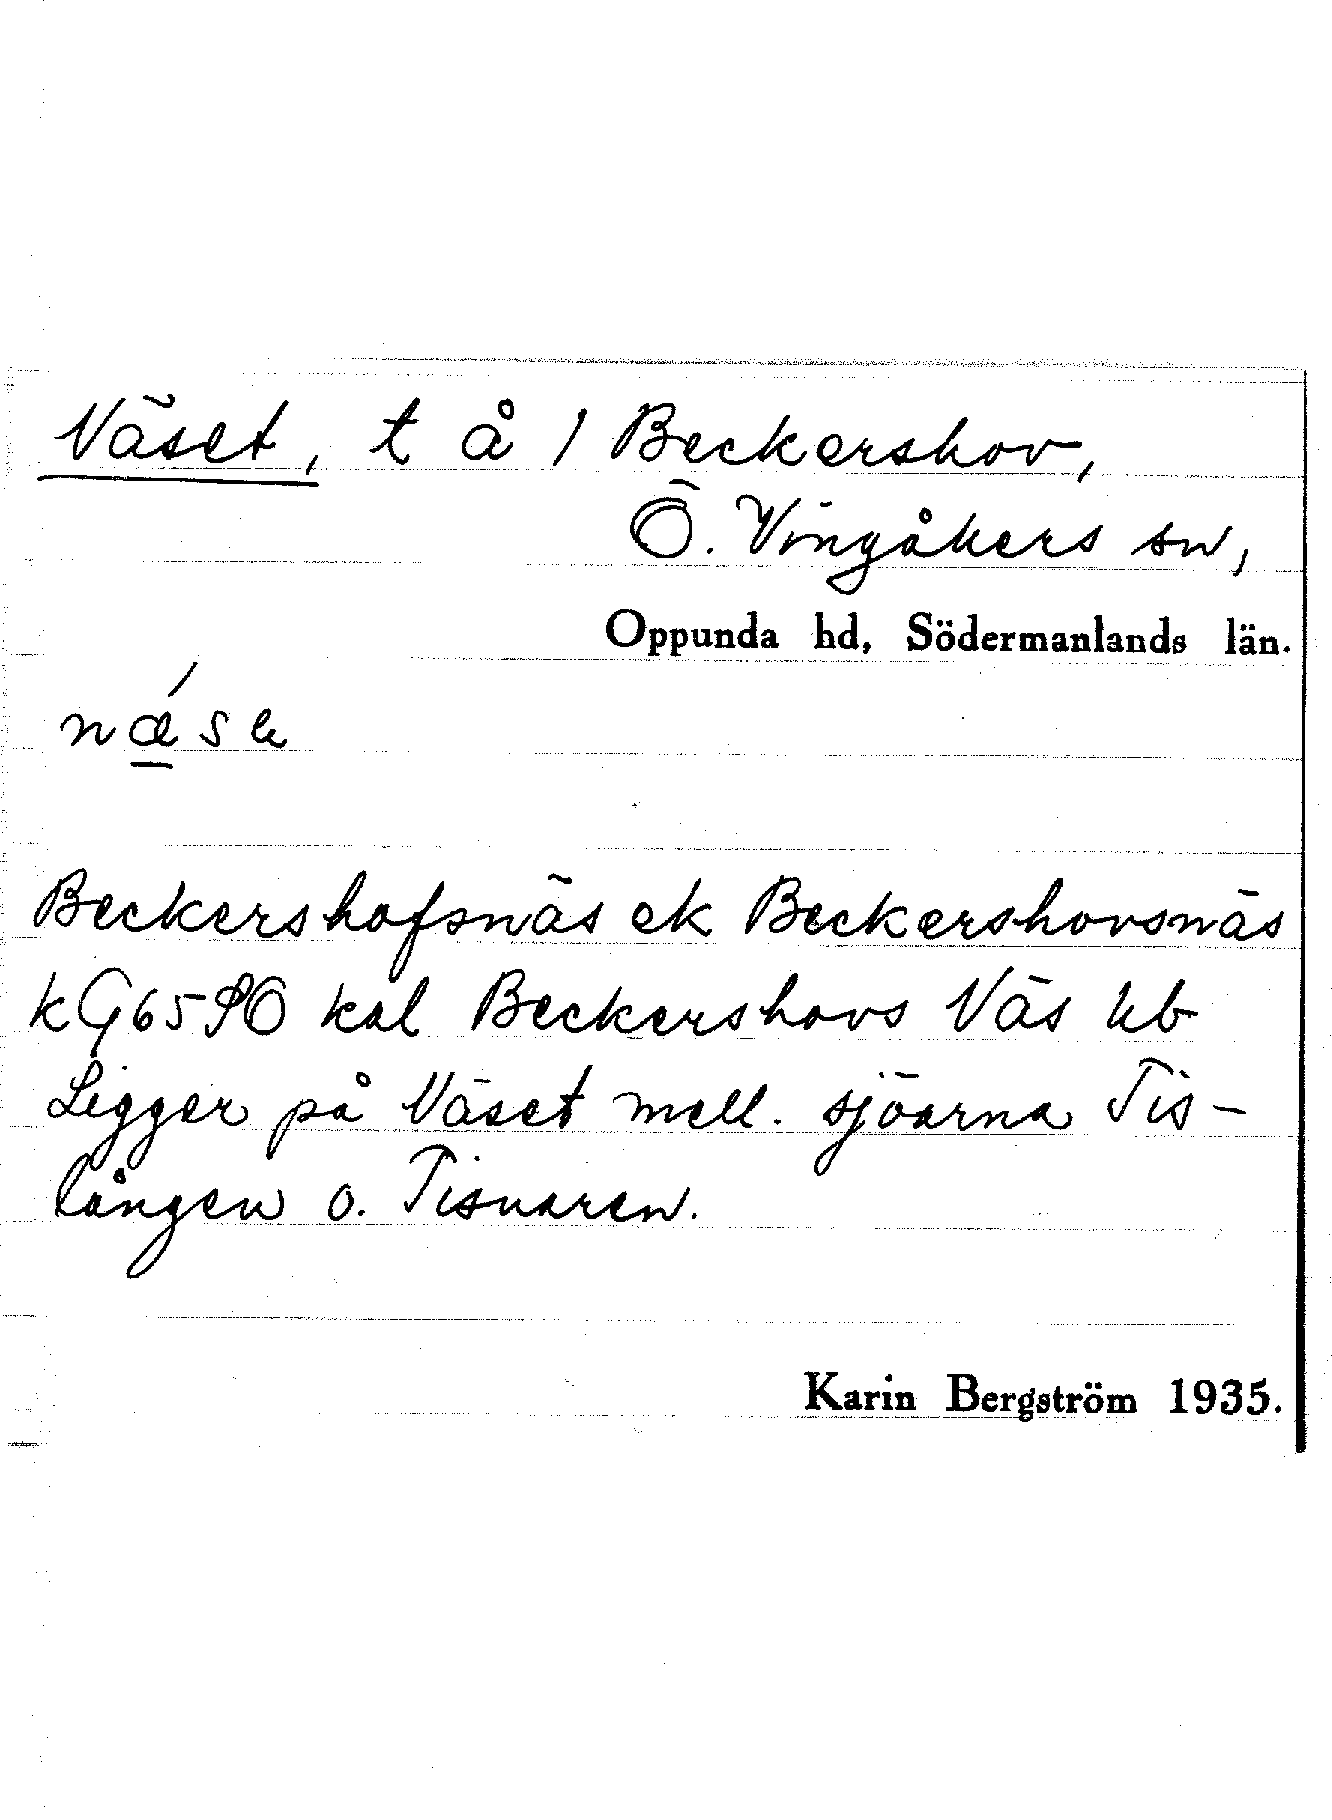 Näset, t å 1 Beckershov,
Ö. Vingåkers sn,
Oppunda hd, Södermanlands län.
næ´se
Beckershofsnäs ek Beckershovsnäs
kG6590 kal Beckershovs Näs hb
Ligger på Näset mell. sjöarna Tis-
lången o. Tisnaren.
Karin Bergström 1935.